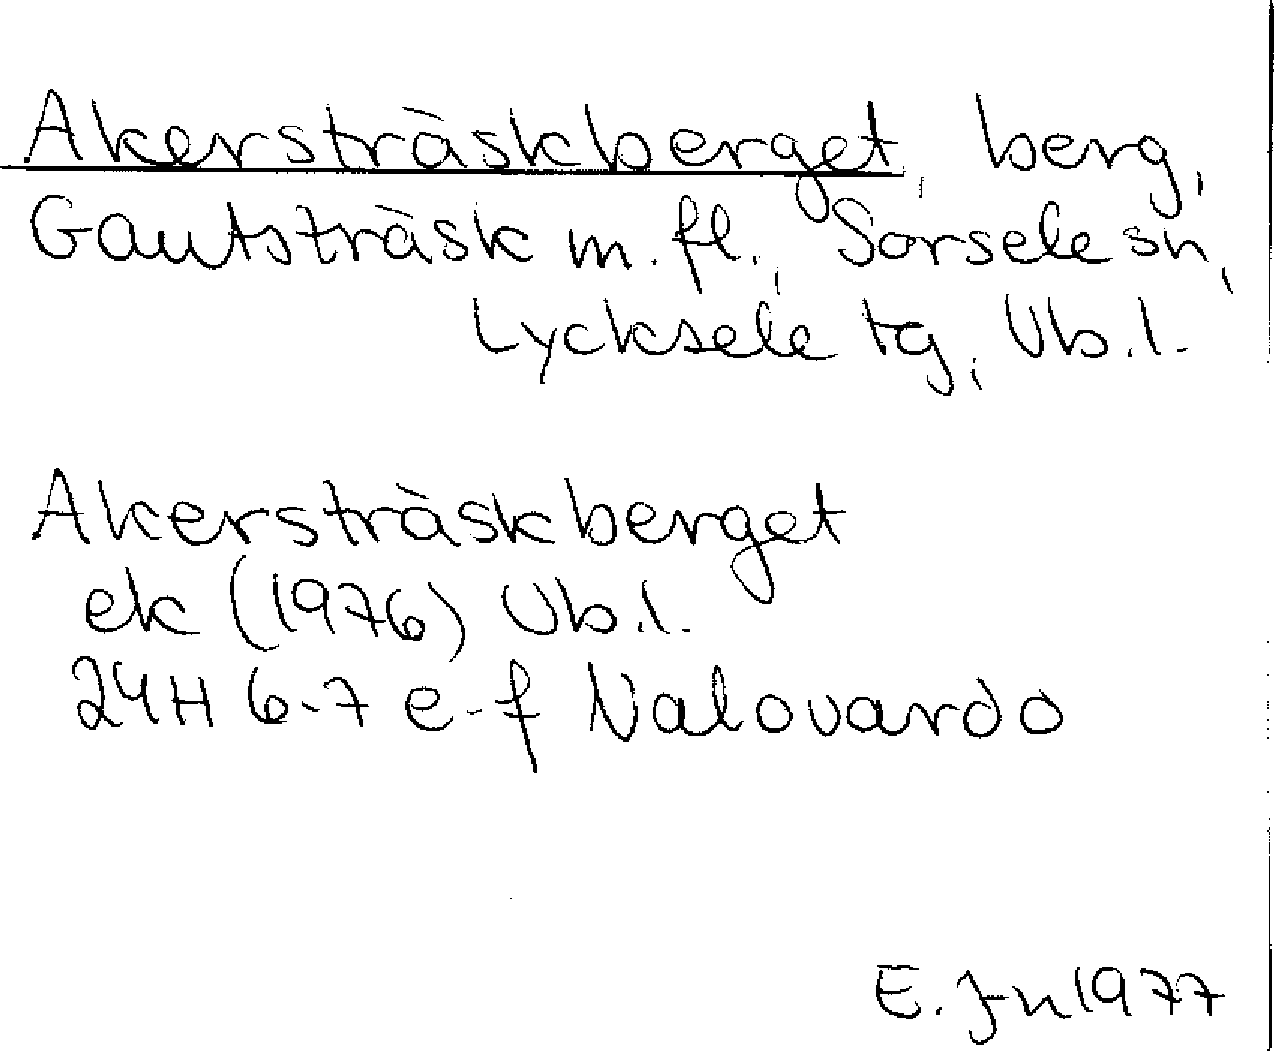 Akersträskberget, berg,
Gautsträsk m. fl., Sorsele sn,
Lycksele tg, Vb.l.
Akersträskberget
ek (1976) Vb.l.
24H 6-7 e-f Nalovardo
E. Jn 1977